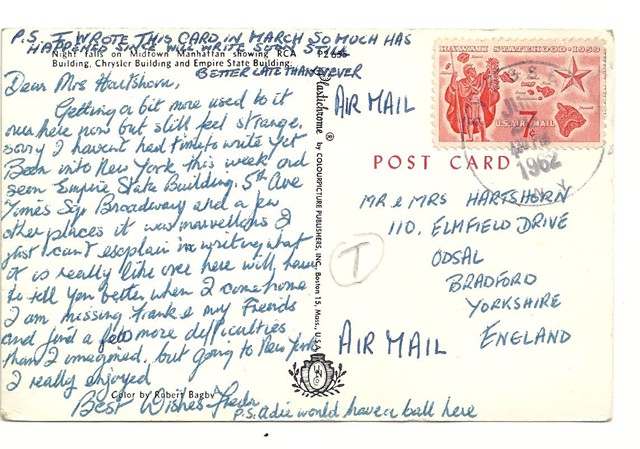 P.S. I WROTE THIS CARD IN MARCH SO MUCH HAS
HAPPENED SINCE WILL WRITE SOON STILL
BETTER LATE THAN NEVER
Night falls on Midtown Manhattan showing RCA
Building, Chrysler Building and Empire State Building.
Dear Mrs Hartshorn,
Getting a bit more used to it
over here now but still feel strange,
sorry I havent had time to write yet
Been into New York this week and
seen Empire State Building. 5th Ave
Times Sqr Broadway and a few
other places it was marvellous I
just can't explain in writing what
it is really like over here will have
to tell you better when I come home
I am missing Frank & my Friends
and find a few more difficulties
than I imagined, but going to New York
I really enjoyed
Color by Robert Bagby
Best Wishes Freda
P.S. Adie would have a ball here
Plastichrome ® by COLOURPICTURE PUBLISHERS, INC., Boston 15, Mass., U.S.A.
AIR MAIL
HAWAII STATEHOOD · 1959
7¢
U.S. AIR MAIL
1962
N.Y.
POST CARD
MR & MRS HARTSHORN
110, ELMFIELD DRIVE
ODSAL
BRADFORD
YORKSHIRE
ENGLAND
T
AIR MAIL